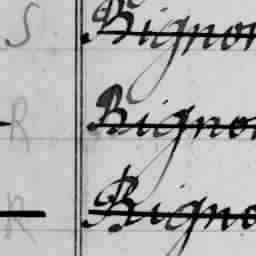 S Bigno
R Bigno
R Bigno